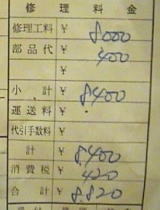 修理料金
修理工料 ¥ 8000
部品代 ¥ 400
¥
小計 ¥ 8400
運送料 ¥
代引手数料 ¥
計 ¥ 8400
消費税 ¥ 420
合計 ¥ 8.820